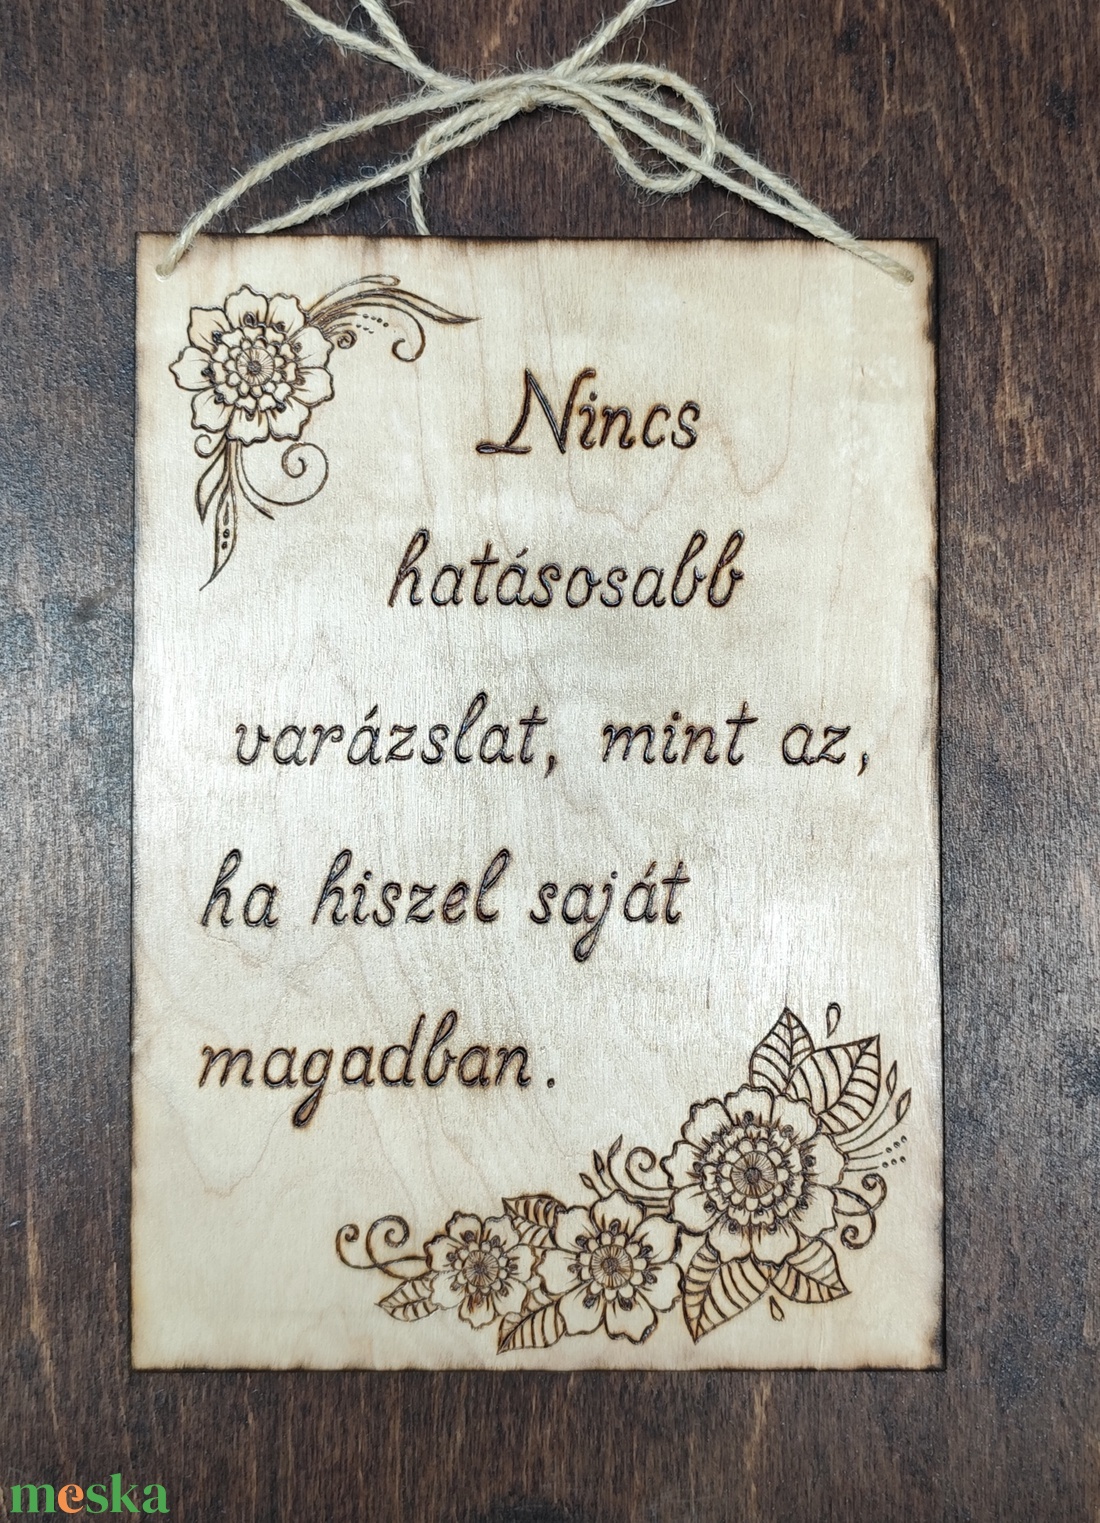 Nincs
hatásosabb
varázslat, mint az,
ha hiszel saját
magadban.
meska